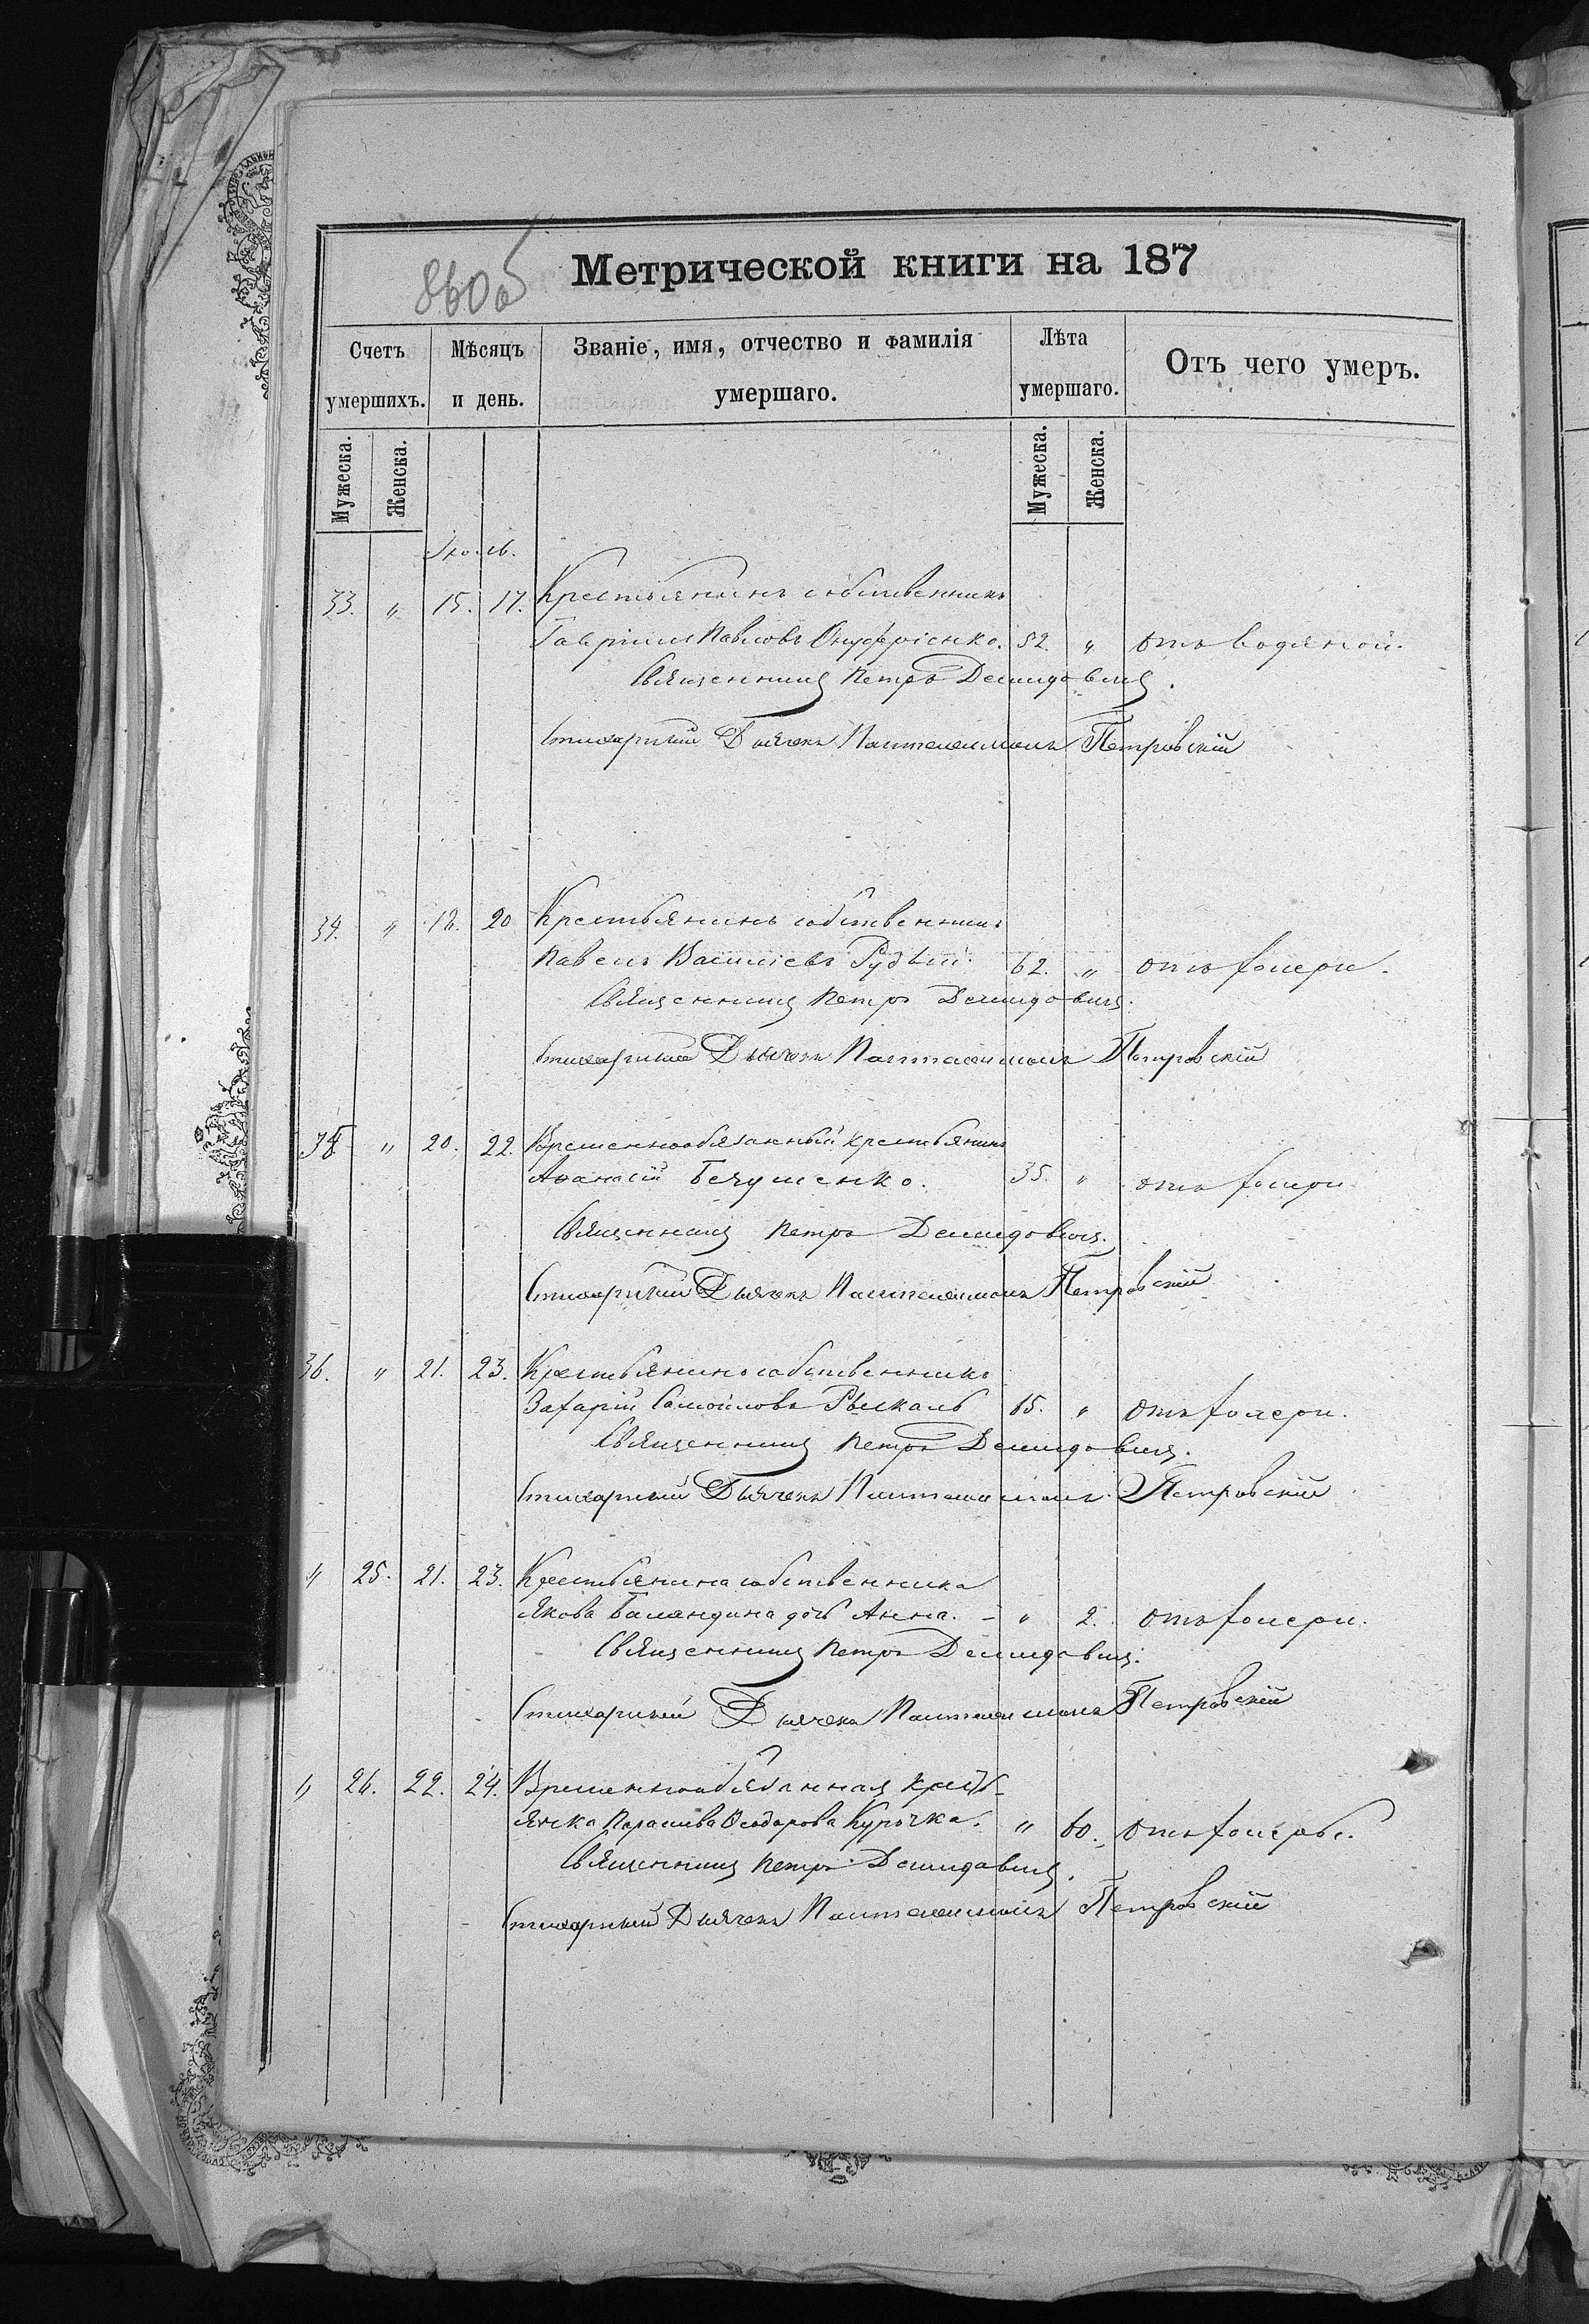 860 об
Метрической книги на 187
Счетъ умершихъ. Мѣсяцъ и день. Званіе, имя, отчество и фамилія умершаго. Лѣта умершаго. Отъ чего умеръ.
Мужеска. Женска. Мужеска. Женска.
Іюль.
33. „ 15. 17. Крестьянинъ собственникъ
Гавріилъ Павловъ Онуфріенко. 52. „ Отъ водяной.
Священникъ Петръ Демидовичъ.
Стихарный Дьячекъ Пантелеимонъ Петровскій
34. „ 18. 20 Крестьянинъ собственникъ
Павелъ Василіевъ Рудый. 62. „ отъ холеры.
Священникъ Петръ Демидовичъ.
Стихарный Дьячекъ Пантелеимонъ Петровскій
35 „ 20. 22. Временнообязанный крестьянинъ
Аѳанасій 35. „ отъ холеры
Священникъ Петръ Демидовичъ.
Стихарный Дьячекъ Пантелеимонъ Петровскій
36. „ 21. 23. Крестьянинъ собственникъ
Захарій Самойловъ Рыскаль 65. „ Отъ холеры.
Священникъ Петръ Демидовичъ.
Стихарный Дьячекъ Пантелеимонъ Петровскій
„ 25. 21. 23. Крестьянина собственника
Якова Баландина дочь Анна. - „ 2. Отъ холеры.
Священникъ Петръ Демидовичъ.
Стихарный Дьячекъ Пантелеимонъ Петровскій
„ 26. 22. 24. Временнообязанная кресть-
янка Параскева Ѳеодорова Курочка. „ 60. Отъ холеры.
Священникъ Петръ Демидовичъ.
Стихарный Дьячекъ Пантелеимонъ Петровскій